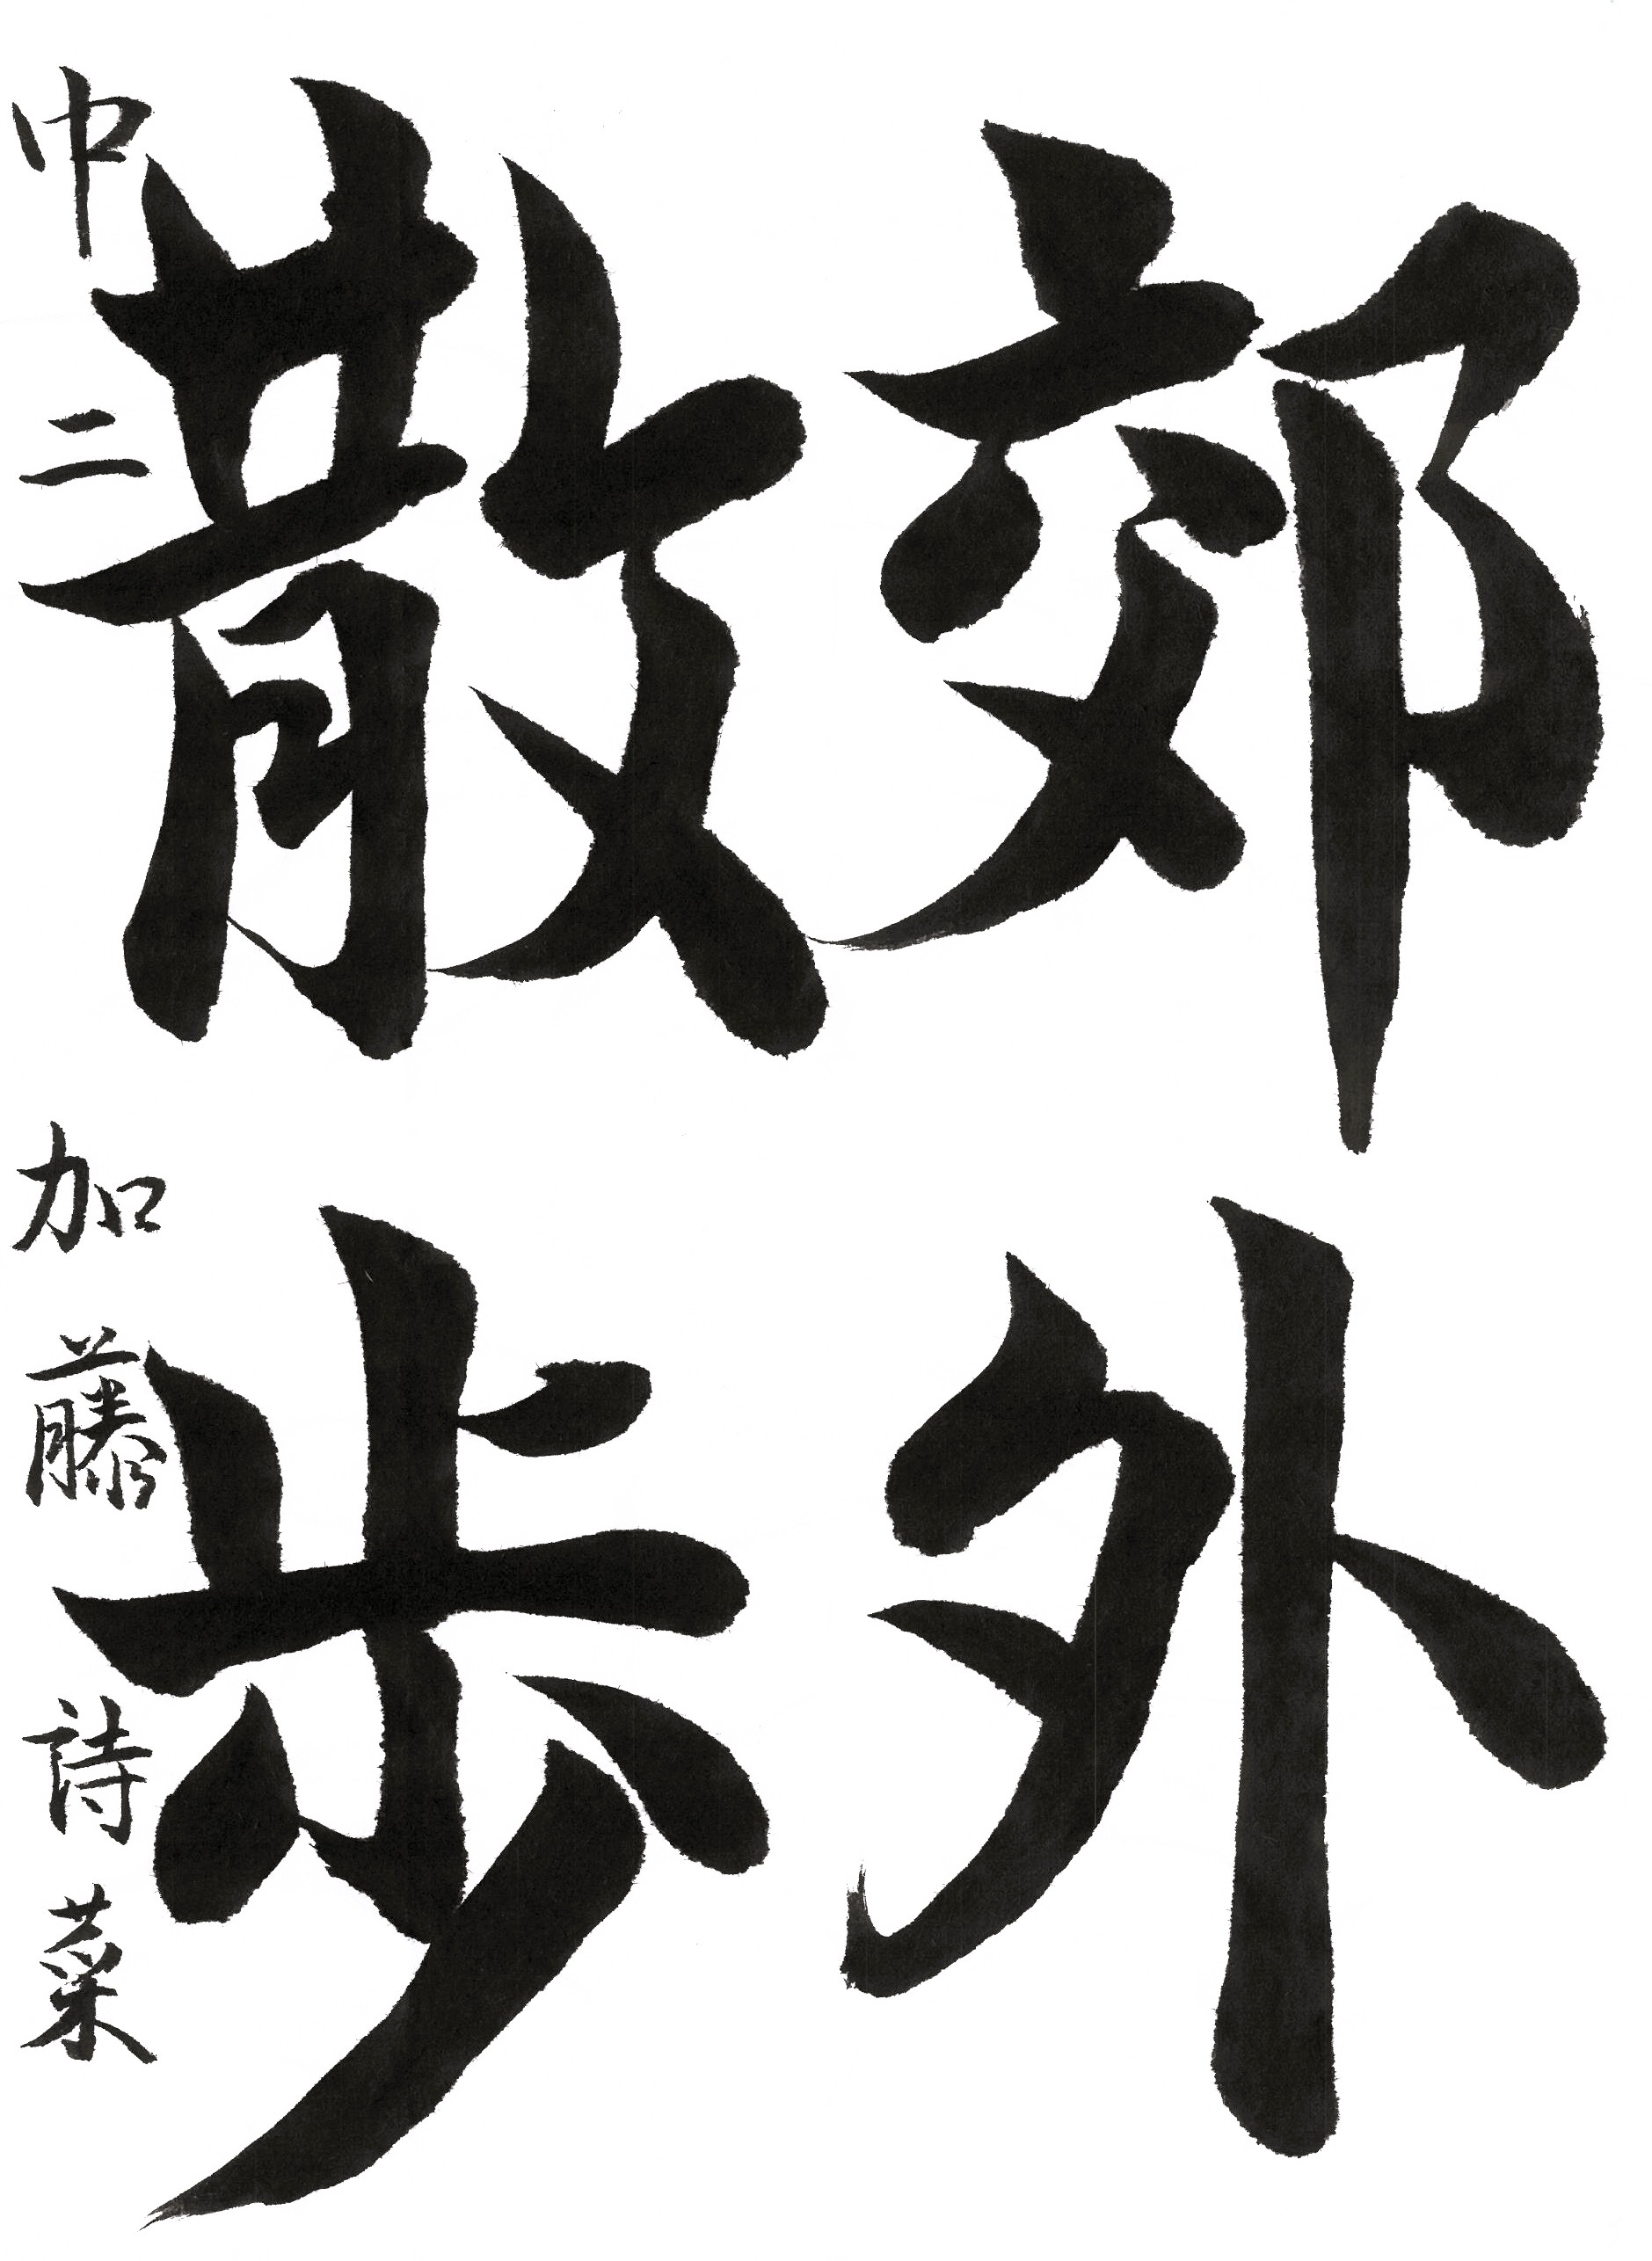 郊外
散歩
中二 加藤詩菜